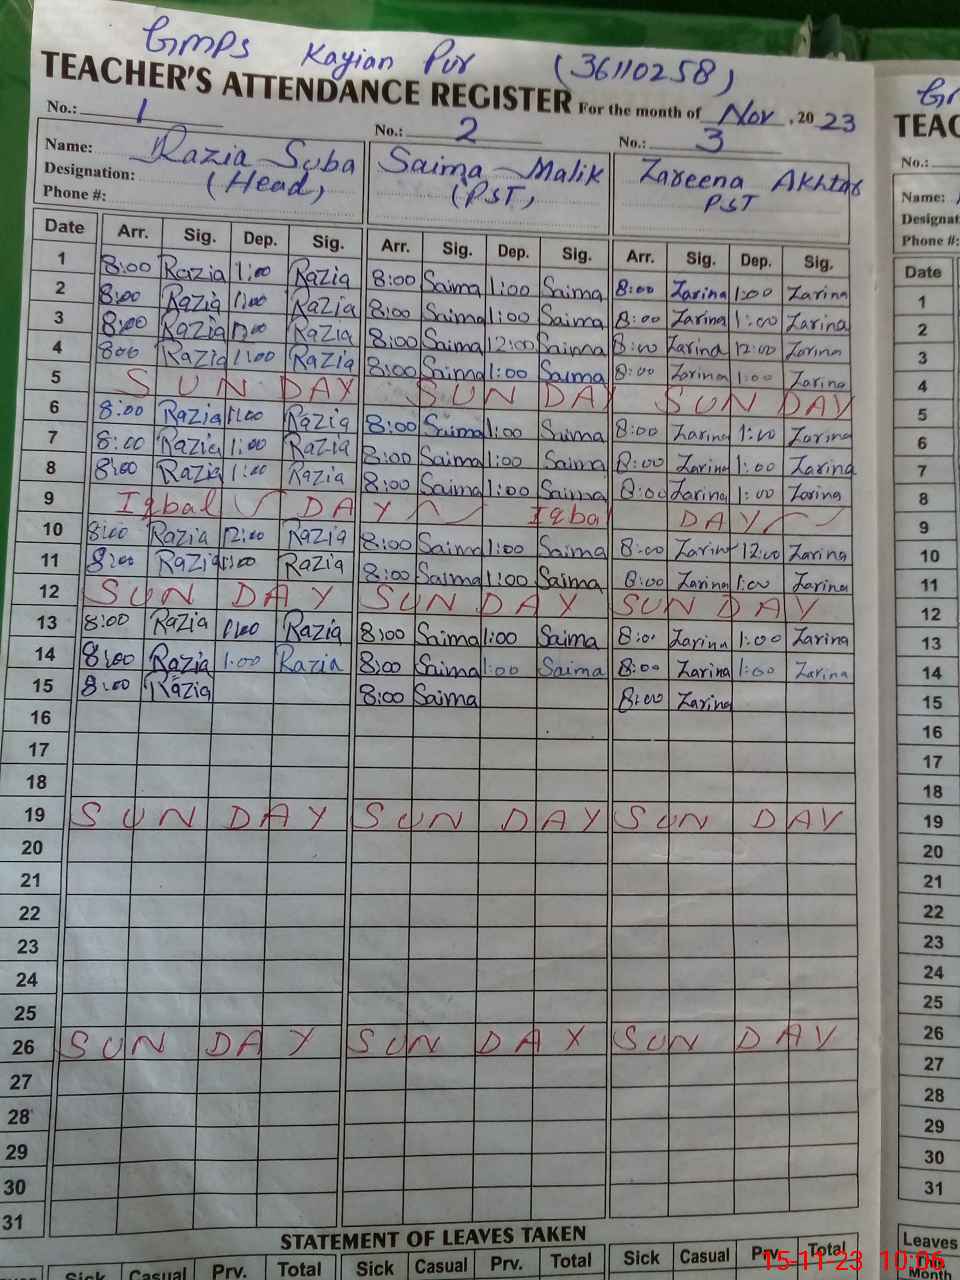 GMPS Kayian Pur (36110258)
TEACHER'S ATTENDANCE REGISTER For the month of Nov , 20 23
No.: 1 No.: 2 No.: 3
Name: Razia Suba Saima Malik Zareena Akhtar
Designation: (Head) (PST) PST
Phone #:
Date Arr. Sig. Dep. Sig. Arr. Sig. Dep. Sig. Arr. Sig. Dep. Sig.
1 8:00 Razia 1:00 Razia 8:00 Saima 1:00 Saima 8:00 Zarina 1:00 Zarina
2 8:00 Razia 1:00 Razia 8:00 Saima 1:00 Saima 8:00 Zarina 1:00 Zarina
3 8:00 Razia Razia 8:00 Saima 12:00 Saima 8:00 Zarina 12:00 Zarina
4 800 Razia 1:00 Razia 8:00 Saima 1:00 Saima 8:00 Zarina 1:00 Zarina
5 SUNDAY SUNDAY SUNDAY
6 8:00 Razia 1:00 Razia 8:00 Saima 1:00 Saima 8:00 Zarina 1:00 Zarina
7 8:00 Razia 1:00 Razia 8:00 Saima 1:00 Saima 8:00 Zarina 1:00 Zarina
8 8:00 Razia 1:00 Razia 8:00 Saima 1:00 Saima 8:00 Zarina 1:00 Zarina
9 Iqbal DAY Iqbal DAY
10 8:00 Razia 12:00 Razia 8:00 Saima 1:00 Saima 8:00 Zarina 12:00 Zarina
11 8:00 Razia 1:00 Razia 8:00 Saima 1:00 Saima 8:00 Zarina 1:00 Zarina
12 SUNDAY SUNDAY SUNDAY
13 8:00 Razia 1:00 Razia 8:00 Saima 1:00 Saima 8:0 Zarina 1:00 Zarina
14 8:00 Razia 1:00 Razia 8:00 Saima 1:00 Saima 8:00 Zarina 1:00 Zarina
15 8:00 Razia 8:00 Saima 8:00 Zarina
16
17
18
19 SUNDAY SUNDAY SUNDAY
20
21
22
23
24
25
26 SUNDAY SUNDAY SUNDAY
27
28
29
30
31
STATEMENT OF LEAVES TAKEN
Sick Casual Prv. Total Sick Casual Prv. Total Sick Casual Prv. Total
TEAC
No.:
Name:
Designat
Phone #:
Date
1
2
3
4
5
6
7
8
9
10
11
12
13
14
15
16
17
18
19
20
21
22
23
24
25
26
27
28
29
30
31
Leaves
Month
15-11-23 10:06